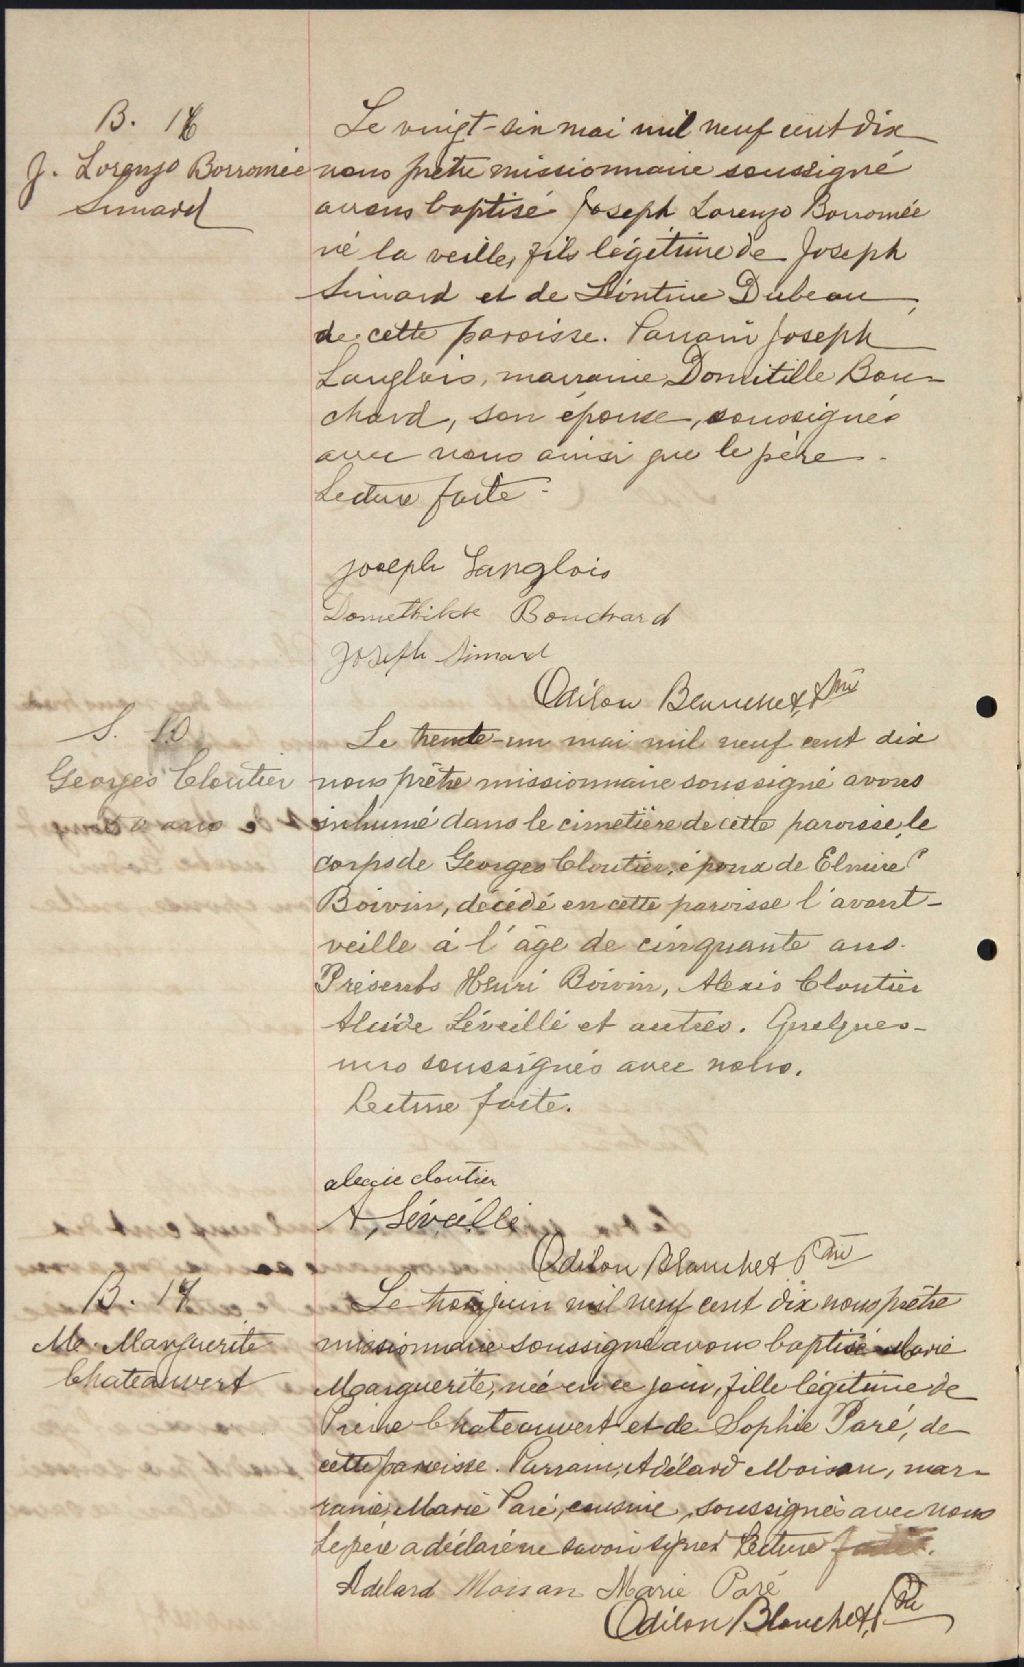 B. 16
J. Lorenzo Borromée
Simard
Le vingt-six mai mil neuf cent dix
nous prêtre missionnaire soussigné
avons baptisé Joseph Lorenzo Borromée
né la veille, fils légitime de Joseph
Simard et de Léontine Dubeau,
de cette paroisse. Parrain Joseph
Langlois, marraine, Domitille Bou-
chard, son épouse, soussignés
avec nous ainsi que le père.
Lecture faite.
joseph Langlois
Bouchard
Joseph Simard
Odilon Blanchet, Ptre
S. 10
Georges Cloutier
50 ans
Le trente-un mai mil neuf cent dix
nous prêtre missionnaire soussigné avons
inhumé dans le cimetière de cette paroisse, le
corps de Georges Cloutier, époux de Elmire
Boivin, décédé en cette paroisse l'avant-
veille à l'âge de cinquante ans.
Présents Henri Boivin, Alexis Cloutier
Alcide Léveillé et autres. Quelques-
uns soussignés avec nous.
Lecture faite.
cloutier
A, Léveillé
Odilon Blanchet Ptre
B. 17
Me. Marguerite
Chateauvert
Le trois juin mil neuf cent dix nous prêtre
missionnaire soussigné avons baptisé Marie
Marguerite, née en ce jour, fille légitime de
Pierre Chateauvert et de Sophie Paré, de
cette paroisse. Parrain, Adélard Moisan, mar-
raine, Marie Paré, cousine, soussignés avec nous
Le père a déclaré ne savoir signer Lecture faite.
Adelard Moisan Marie Paré
Odilon Blanchet, Ptre